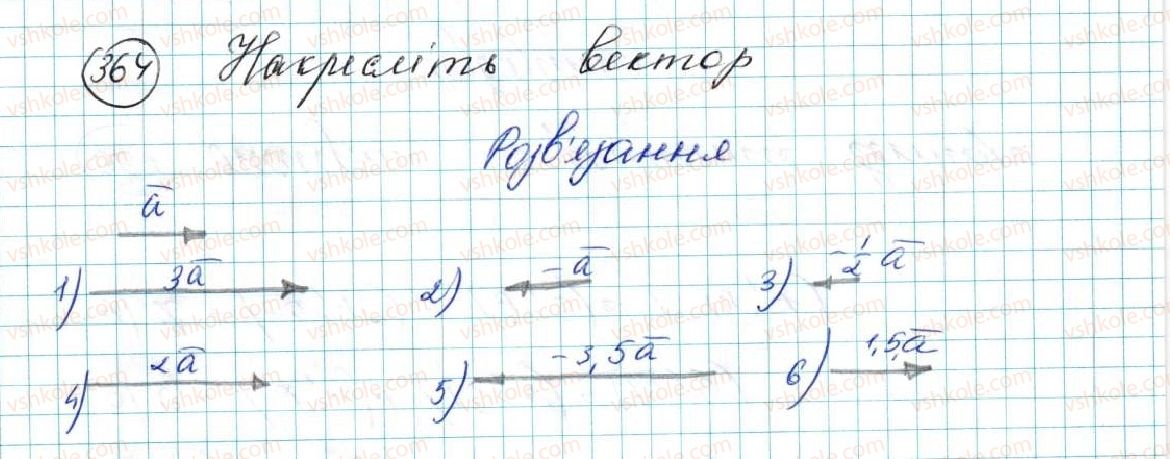 364 Накресліть вектор
Розв'язання
a̅
1) 3a̅ 2) -a̅ 3) -1/2 a̅
4) 2a̅ 5) -3,5a̅ 6) 1,5a̅
vshkole.com